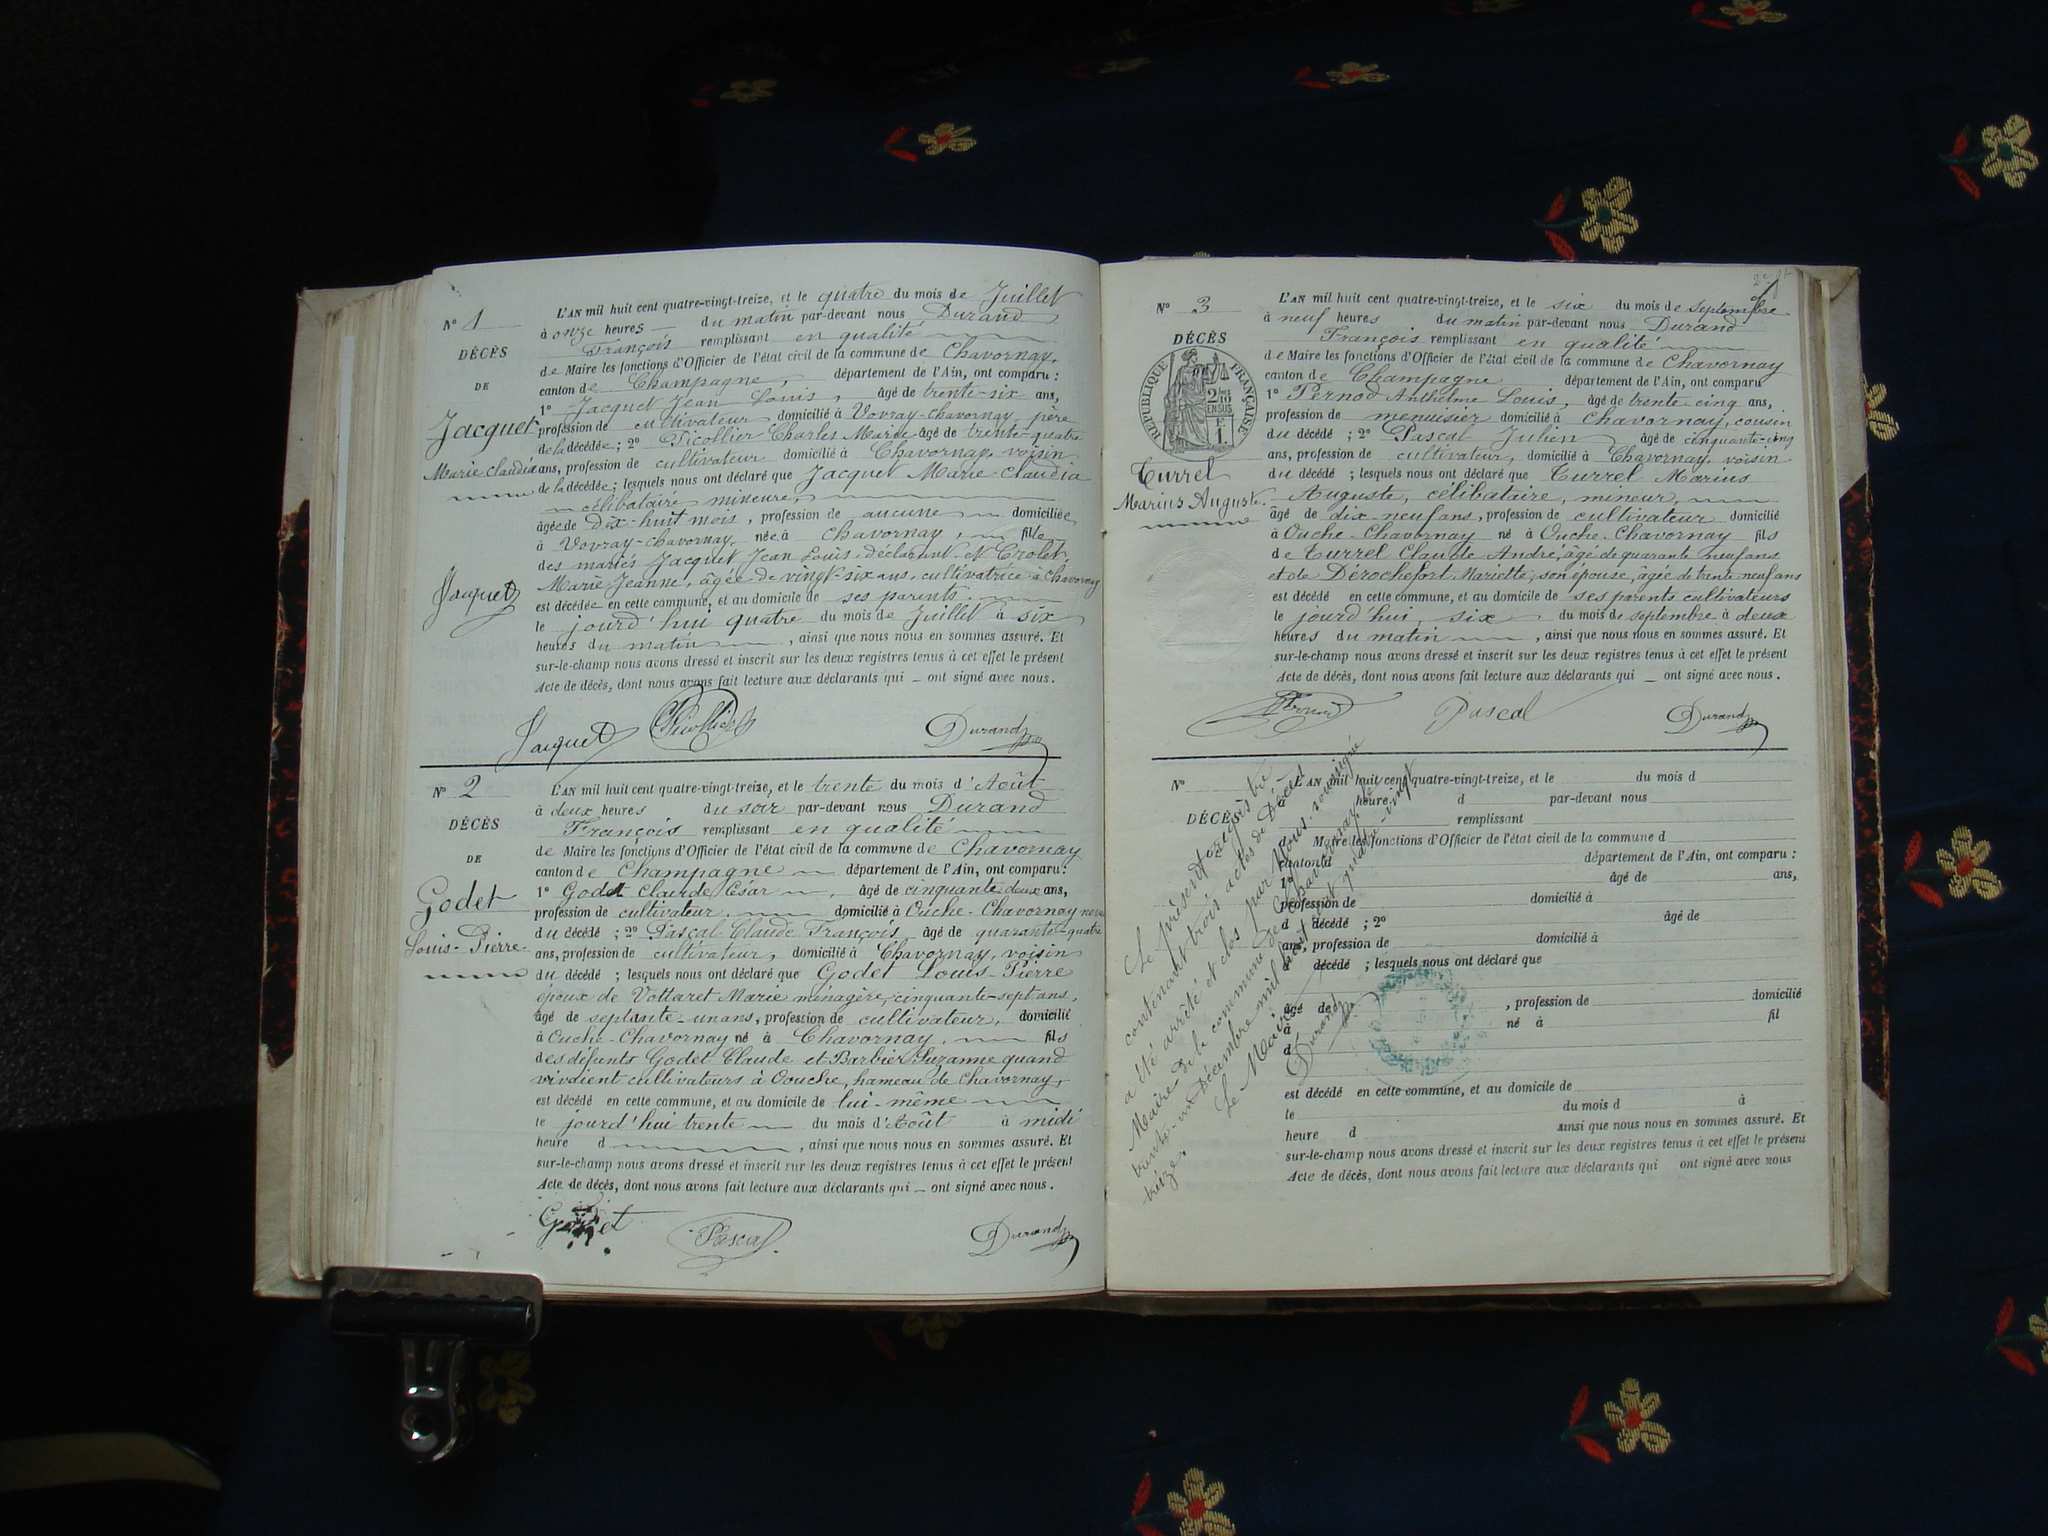 N° 1
DÉCÈS
DE
Jacquet
Marie Claudia
Jacquet
L'AN mil huit cent quatre-vingt-treize, et le quatre du mois de Juillet
à onze heures du matin par-devant nous Durand
François remplissant en qualité
de Maire les fonctions d'Officier de l'état civil de la commune de Chavornay,
canton de Champagne, département de l'Ain, ont comparu :
1° Jacquet Jean Louis, âgé de trente-six ans,
profession de cultivateur domicilié à Vovray-chavornay, père
de la décédée ; 2° Picollier Charles Marie âgé de trente-quatre
ans, profession de cultivateur domicilié à Chavornay, voisin
de la décédée ; lesquels nous ont déclaré que Jacquet Marie-Claudia
célibataire mineure,
âgée de dix-huit mois, profession de aucune domiciliée
à Vovray-chavornay, née à chavornay, fille
des mariés Jacquet Jean Louis, déclarant et Trolet
Marie Jeanne, âgée de vingt-six ans, cultivatrice à chavornay
est décédée en cette commune, et au domicile de ses parents
le jourd'hui quatre du mois de Juillet à six
heures du matin, ainsi que nous nous en sommes assuré. Et
sur-le-champ nous avons dressé et inscrit sur les deux registres tenus à cet effet le présent
Acte de décès, dont nous avons fait lecture aux déclarants qui _ ont signé avec nous.
Jacquet Picollier Durand
N° 2
DÉCÈS
DE
Godet
Louis-Pierre
L'AN mil huit cent quatre-vingt-treize, et le trente du mois d'Août
à deux heures du soir par-devant nous Durand
François remplissant en qualité
de Maire les fonctions d'Officier de l'état civil de la commune de Chavornay
canton de Champagne département de l'Ain, ont comparu :
1° Godet Claude César, âgé de cinquante deux ans,
profession de cultivateur, domicilié à Ouche-Chavornay neveu
du décédé ; 2° Pascal Claude François, âgé de quarante-quatre
ans, profession de cultivateur, domicilié à Chavornay, voisin
du décédé ; lesquels nous ont déclaré que Godet Louis-Pierre
époux de Vottaret Marie ménagère, cinquante-sept ans,
âgé de septante-un ans, profession de cultivateur, domicilié
à Ouche-Chavornay né à Chavornay, fils
des défunts Godet Claude et Barbier Suzanne quand
vivaient cultivateurs à Oouche, hameau de Chavornay,
est décédé en cette commune, et au domicile de lui-même
le jourd'hui trente du mois d'Août à midi
heure d , ainsi que nous nous en sommes assuré. Et
sur-le-champ nous avons dressé et inscrit sur les deux registres tenus à cet effet le présent
Acte de décès, dont nous avons fait lecture aux déclarants qui _ ont signé avec nous.
Godet Pascal Durand
N° 3
DÉCÈS
RÉPUBLIQUE FRANÇAISE
Turrel
Marius Auguste
L'AN mil huit cent quatre-vingt-treize, et le six du mois de Septembre
à neuf heures du matin par-devant nous Durand
François remplissant en qualité
de Maire les fonctions d'Officier de l'état civil de la commune de Chavornay
canton de Champagne département de l'Ain, ont comparu
1° Pernod Anthelme Louis, âgé de trente-cinq ans,
profession de menuisier domicilié à Chavornay, cousin
du décédé ; 2° Pascal Julien âgé de cinquante-cinq
ans, profession de cultivateur, domicilié à Chavornay, voisin
du décédé ; lesquels nous ont déclaré que Turrel Marius
Auguste, célibataire, mineur,
âgé de dix-neuf ans, profession de cultivateur domicilié
à Ouche-Chavornay né à Ouche-Chavornay fils
de Turrel Claude André, âgé de quarante neuf ans
et de Dérochefort Mariette, son épouse, âgée de trente neuf ans
est décédé en cette commune, et au domicile de ses parents cultivateurs
le jourd'hui, six du mois de septembre à deux
heures du matin, ainsi que nous nous en sommes assuré. Et
sur-le-champ nous avons dressé et inscrit sur les deux registres tenus à cet effet le présent
Acte de décès, dont nous avons fait lecture aux déclarants qui _ ont signé avec nous.
Pernod Pascal Durand
N°
DÉCÈS
L'AN mil huit cent quatre-vingt-treize, et le du mois d
heure d par-devant nous
remplissant
d Maire les fonctions d'Officier de l'état civil de la commune d
canton d département de l'Ain, ont comparu :
1° âgé de ans,
profession de domicilié à
d décédé ; 2° âgé de
ans, profession de domicilié à
d décédé ; lesquels nous ont déclaré que
âgé de , profession de domicilié
à né à fil
d
est décédé en cette commune, et au domicile de
le du mois d à
heure d ainsi que nous nous en sommes assuré. Et
sur-le-champ nous avons dressé et inscrit sur les deux registres tenus à cet effet le présent
Acte de décès, dont nous avons fait lecture aux déclarants qui ont signé avec nous
Le présent registre
contenant trois actes de Décès
a été arrêté et clos par Nous, soussigné
Maire de la commune de Chavornay, le
trente-un Décembre mil huit cent quatre-vingt
treize.
Le Maire
Durand